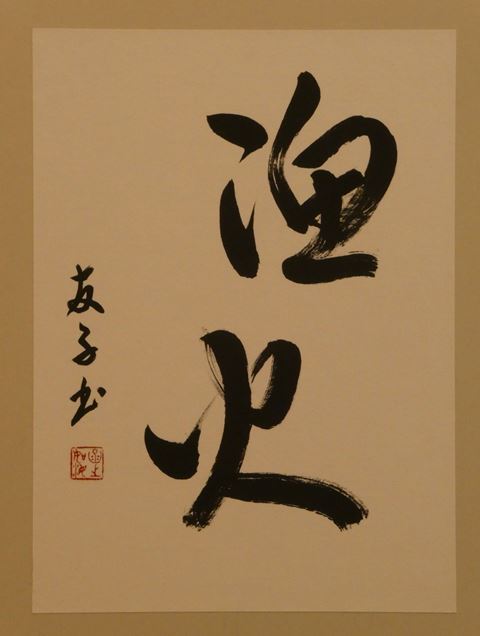 漁火
友子書